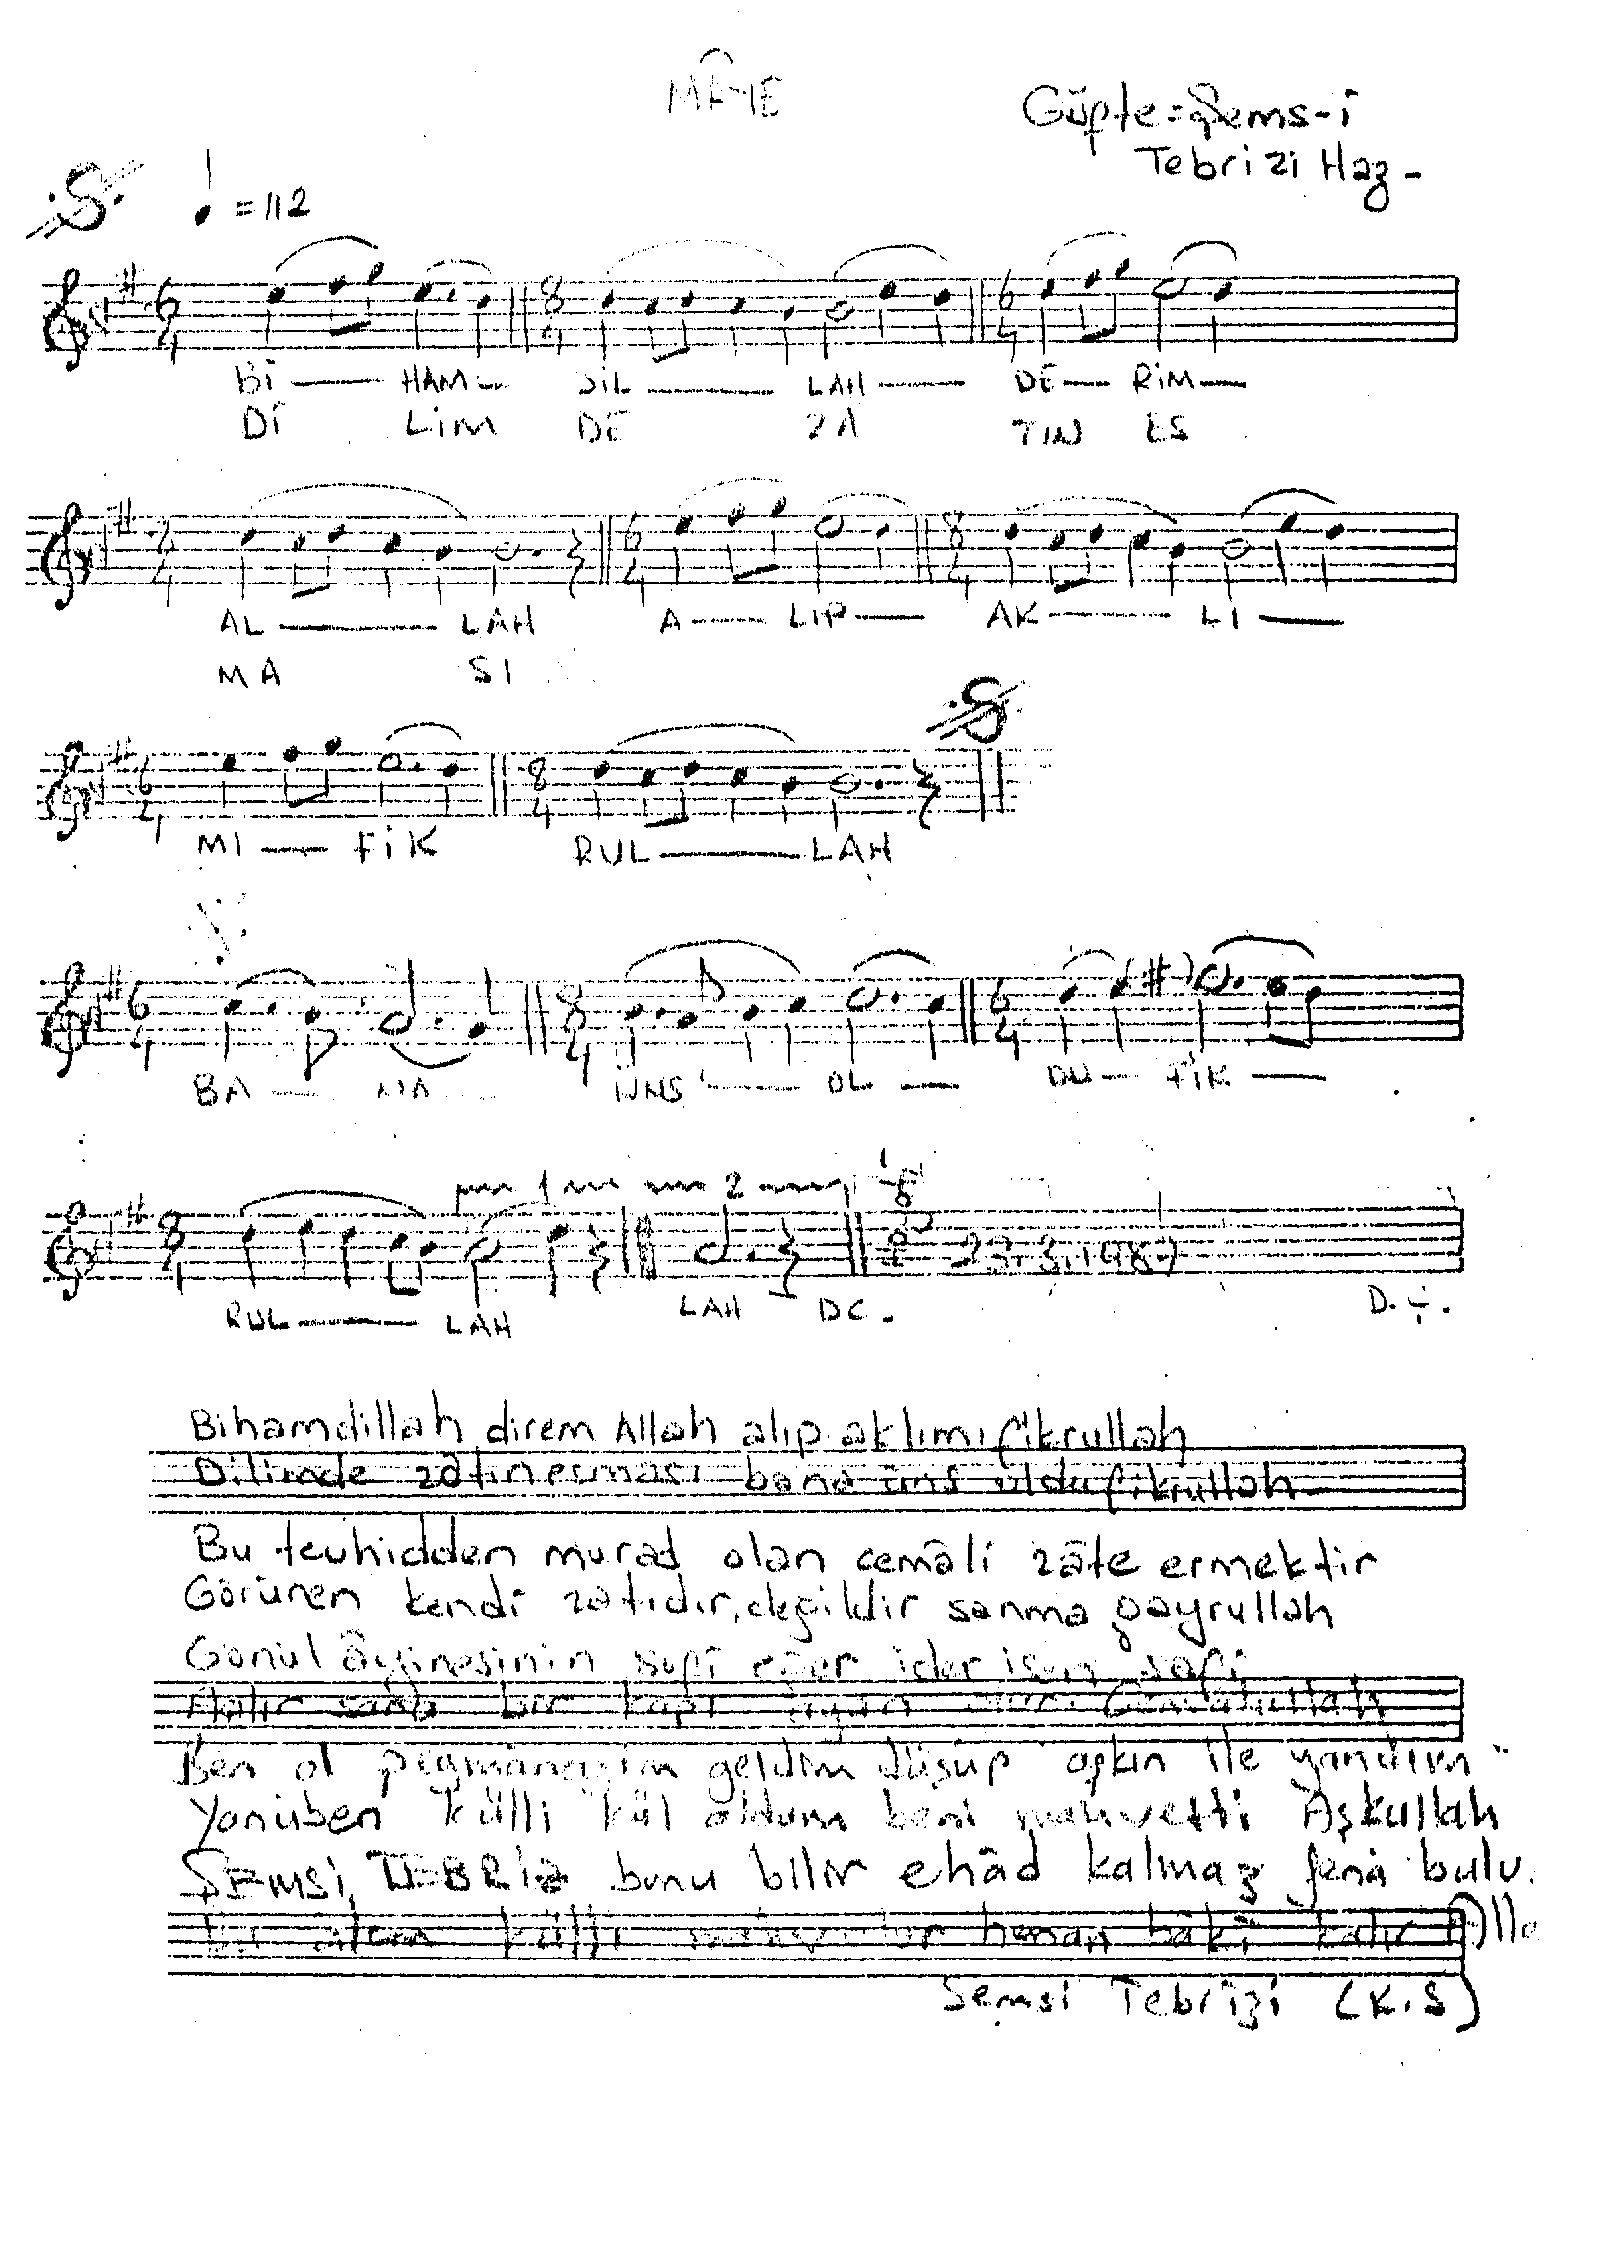 MÂYE
Güfte=Şems-i
Tebrizi Haz-
=112
6 4 8 4 6 4
Bİ — HAM — DİL — LAH — DE — RİM —
Dİ LİM DE ZÂ TIN ES
4 6 4 8 4
AL — LAH A — LIP — AK — LI —
MA SI
6 4 8 4
MI — FİK RUL — LAH
6 4 8 4 6 4
BA — NA ÜNS — OL — DU — FİK —
8 4 1 2
23.3.1987
RUL — LAH LAH DC.
Bihamdillah direm Allah alıp aklımı fikrullah
Dilimde zâtın esması bana üns oldu fikrullah
Bu tevhidden murad olan cemâli zâte ermektir
Görünen kendi zatıdır, değildir sanma gayrullah
Gönül âyinesinin sufi eğer ider isen safi
bir kapı Cemâlullah
Ben ol geldim düşüp aşkın ile yandım
Yanüben külli kül oldum beni mahvetti Aşkullah
ŞEMSİ TEBRİZ bunu bilir ehâd kalmaz fenâ bulu.
âlem külli heman bâkî kalır Alla
Şemsi Tebrîzi (K.S)